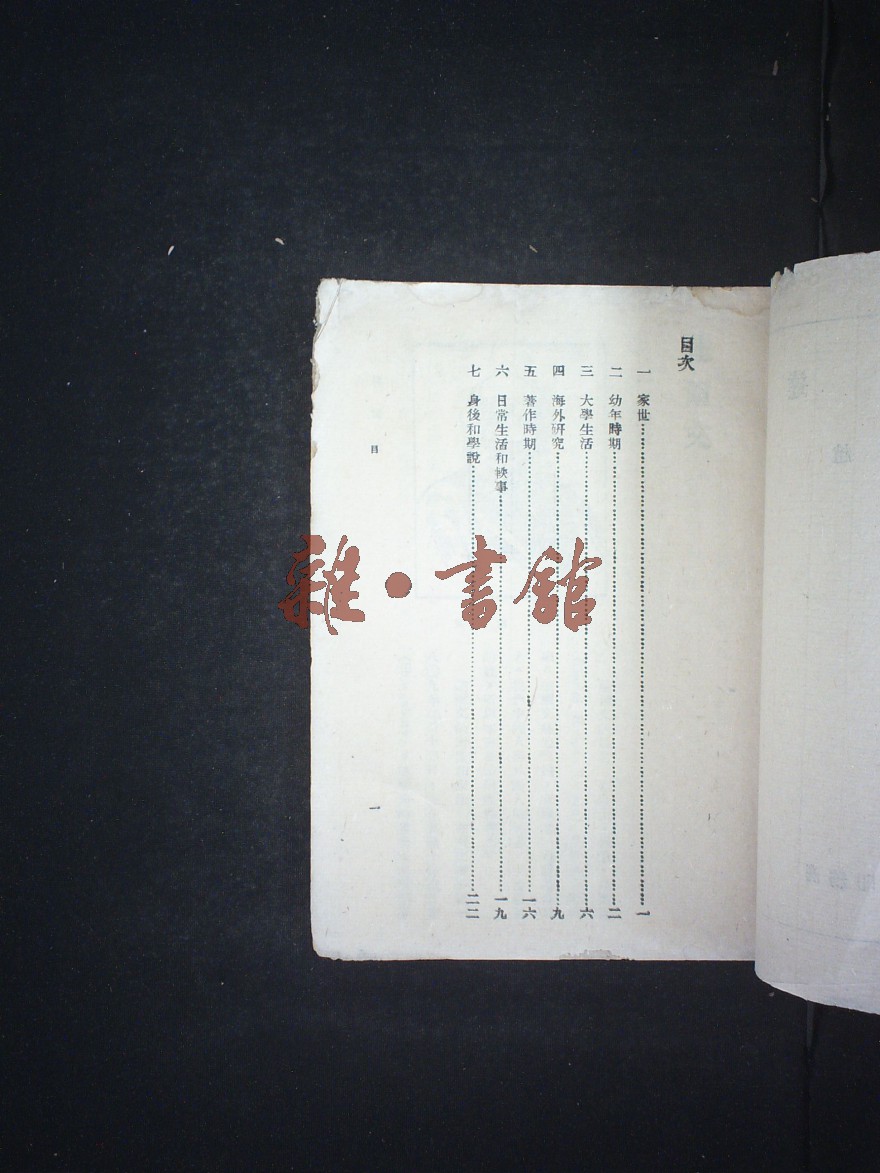 目次
一 家世………一
二 幼年時期………二
三 大學生活………六
四 海外研究………九
五 著作時期………一六
六 日常生活和軼事………一九
七 身後和學說………二二
目
一
雜·書館